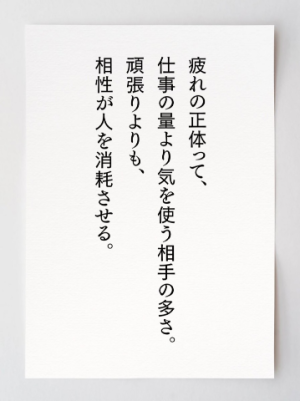 疲れの正体って、
仕事の量より気を使う相手の多さ。
頑張りよりも、
相性が人を消耗させる。